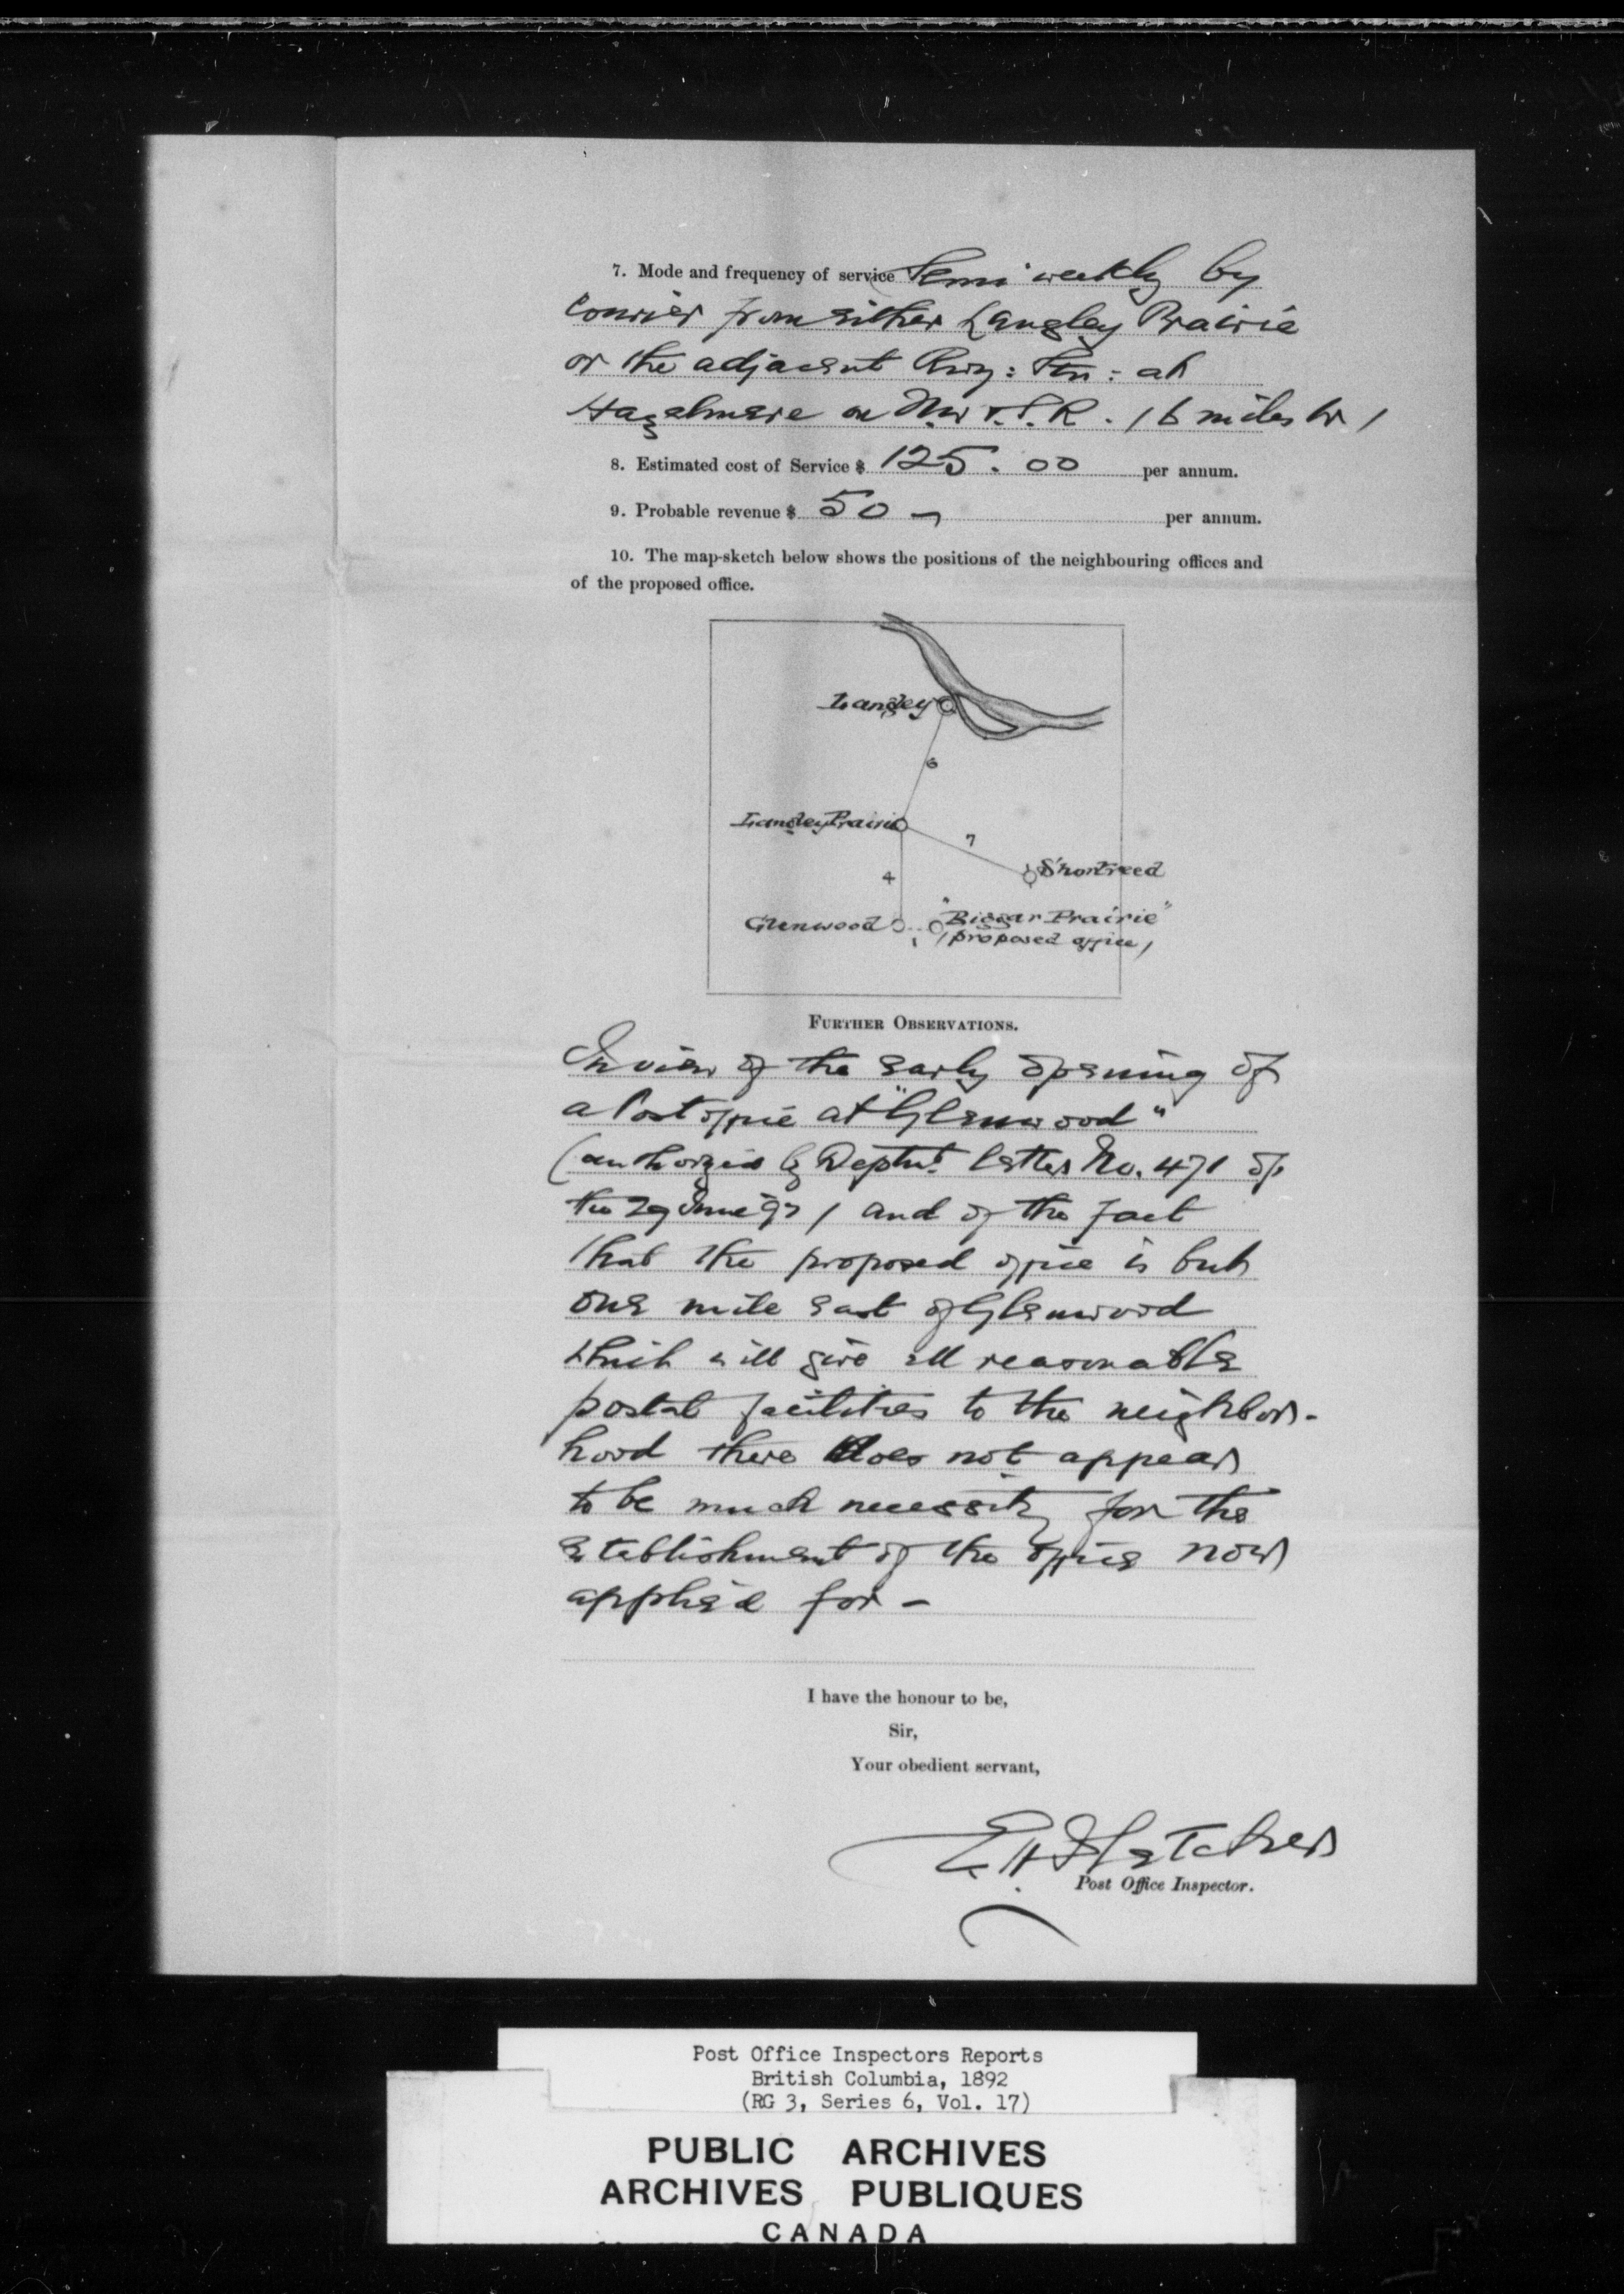 7. Mode and frequency of service Semi weekly by
Courier from either Langley Prairie
or the adjacent Rwy: Stn: at
Hazelmere on N.W & S.R. (6 miles W)
8. Estimated cost of Service $ 125.00 per annum.
9. Probable revenue $ 50 – per annum.
10. The map-sketch below shows the positions of the neighbouring offices and
of the proposed office.
Langley
6
Langley Prairie
7
Shortreed
4
Glenwood
1
"Biggar Prairie"
(proposed office)
FURTHER OBSERVATIONS.
In view of the early opening of
a Post office at "Glenwood"
(authorized by Deptmt. letter No. 471 of
the 29 June 92) and of the fact
that the proposed office is but
one mile east of Glenwood
which will give all reasonable
postal facilities to the neighbor-
hood there does not appear
to be much necessity for the
establishment of the office now
applied for –
I have the honour to be,
Sir,
Your obedient servant,
E.H. Fletcher
Post Office Inspector.
Post Office Inspectors Reports
British Columbia, 1892
(RG 3, Series 6, Vol. 17)
PUBLIC ARCHIVES
ARCHIVES PUBLIQUES
CANADA